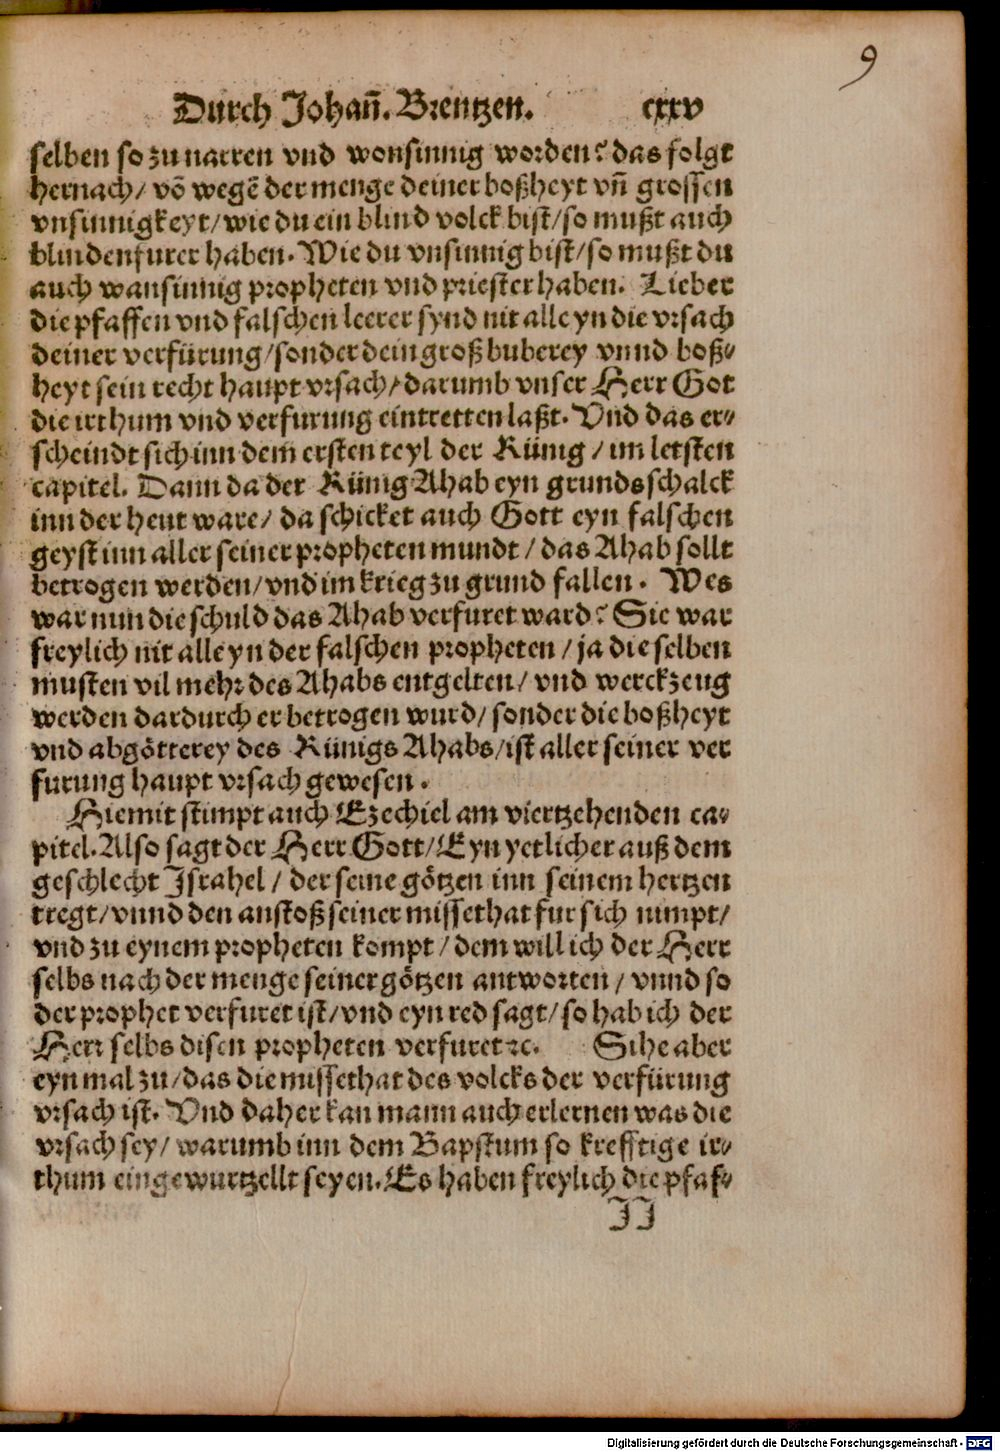 9
Durch Johañ. Brentzen. cxxv
selben so zu narren vnd wonsinnig worden? das folgt
hernach/ võ wegẽ der menge deiner boßheyt vñ grossen
vnsinnigkeyt/ wie du ein blind volck bist/ so mußt auch
blindenfurer haben. Wie du vnsinnig bist/ so mußt du
auch wansinnig propheten vnd priester haben. Lieber
die pfaffen vnd falschen leerer synd nit alleyn die vrsach
deiner verfürung/ sonder dein groß buberey vnnd boß⸗
heyt sein recht haupt vrsach/ darumb vnser Herr Got
die irthum vnd verfurung eintretten laßt. Vnd das er⸗
scheindt sich inn dem ersten teyl der Künig / im letsten
capitel. Dann da der Künig Ahab eyn grundsschalck
inn der heut ware/ da schicket auch Gott eyn falschen
geyst inn aller seiner propheten mundt / das Ahab sollt
betrogen werden/ vnd im krieg zu grund fallen. Wes
war nun die schuld das Ahab verfuret ward? Sie war
freylich nit alleyn der falschen propheten / ja die selben
musten vil mehr des Ahabs entgelten/ vnd werckzeug
werden dardurch er betrogen wurd/ sonder die boßheyt
vnd abgötterey des Künigs Ahabs/ ist aller seiner ver
furung haupt vrsach gewesen.
Hiemit stimpt auch Ezechiel am viertzehenden ca⸗
pitel. Also sagt der Herr Gott/ Eyn yetlicher auß dem
geschlecht Israhel / der seine götzen inn seinem hertzen
tregt/ vnnd den anstoß seiner missethat fur sich nimpt/
vnd zu eynem propheten kompt / dem will ich der Herr
selbs nach der menge seiner götzen antworten / vnnd so
der prophet verfuret ist/ vnd eyn red sagt/ so hab ich der
Herr selbs disen propheten verfuret ⁊c. Sihe aber
eyn mal zu/ das die missethat des volcks der verfürung
vrsach ist. Vnd daher kan mann auch erlernen was die
vrsach sey/ warumb inn dem Bapstum so krefftige ir⸗
thum eingewurtzellt seyen. Es haben freylich die pfaf⸗
JJ
Digitalisierung gefördert durch die Deutsche Forschungsgemeinschaft - DFG